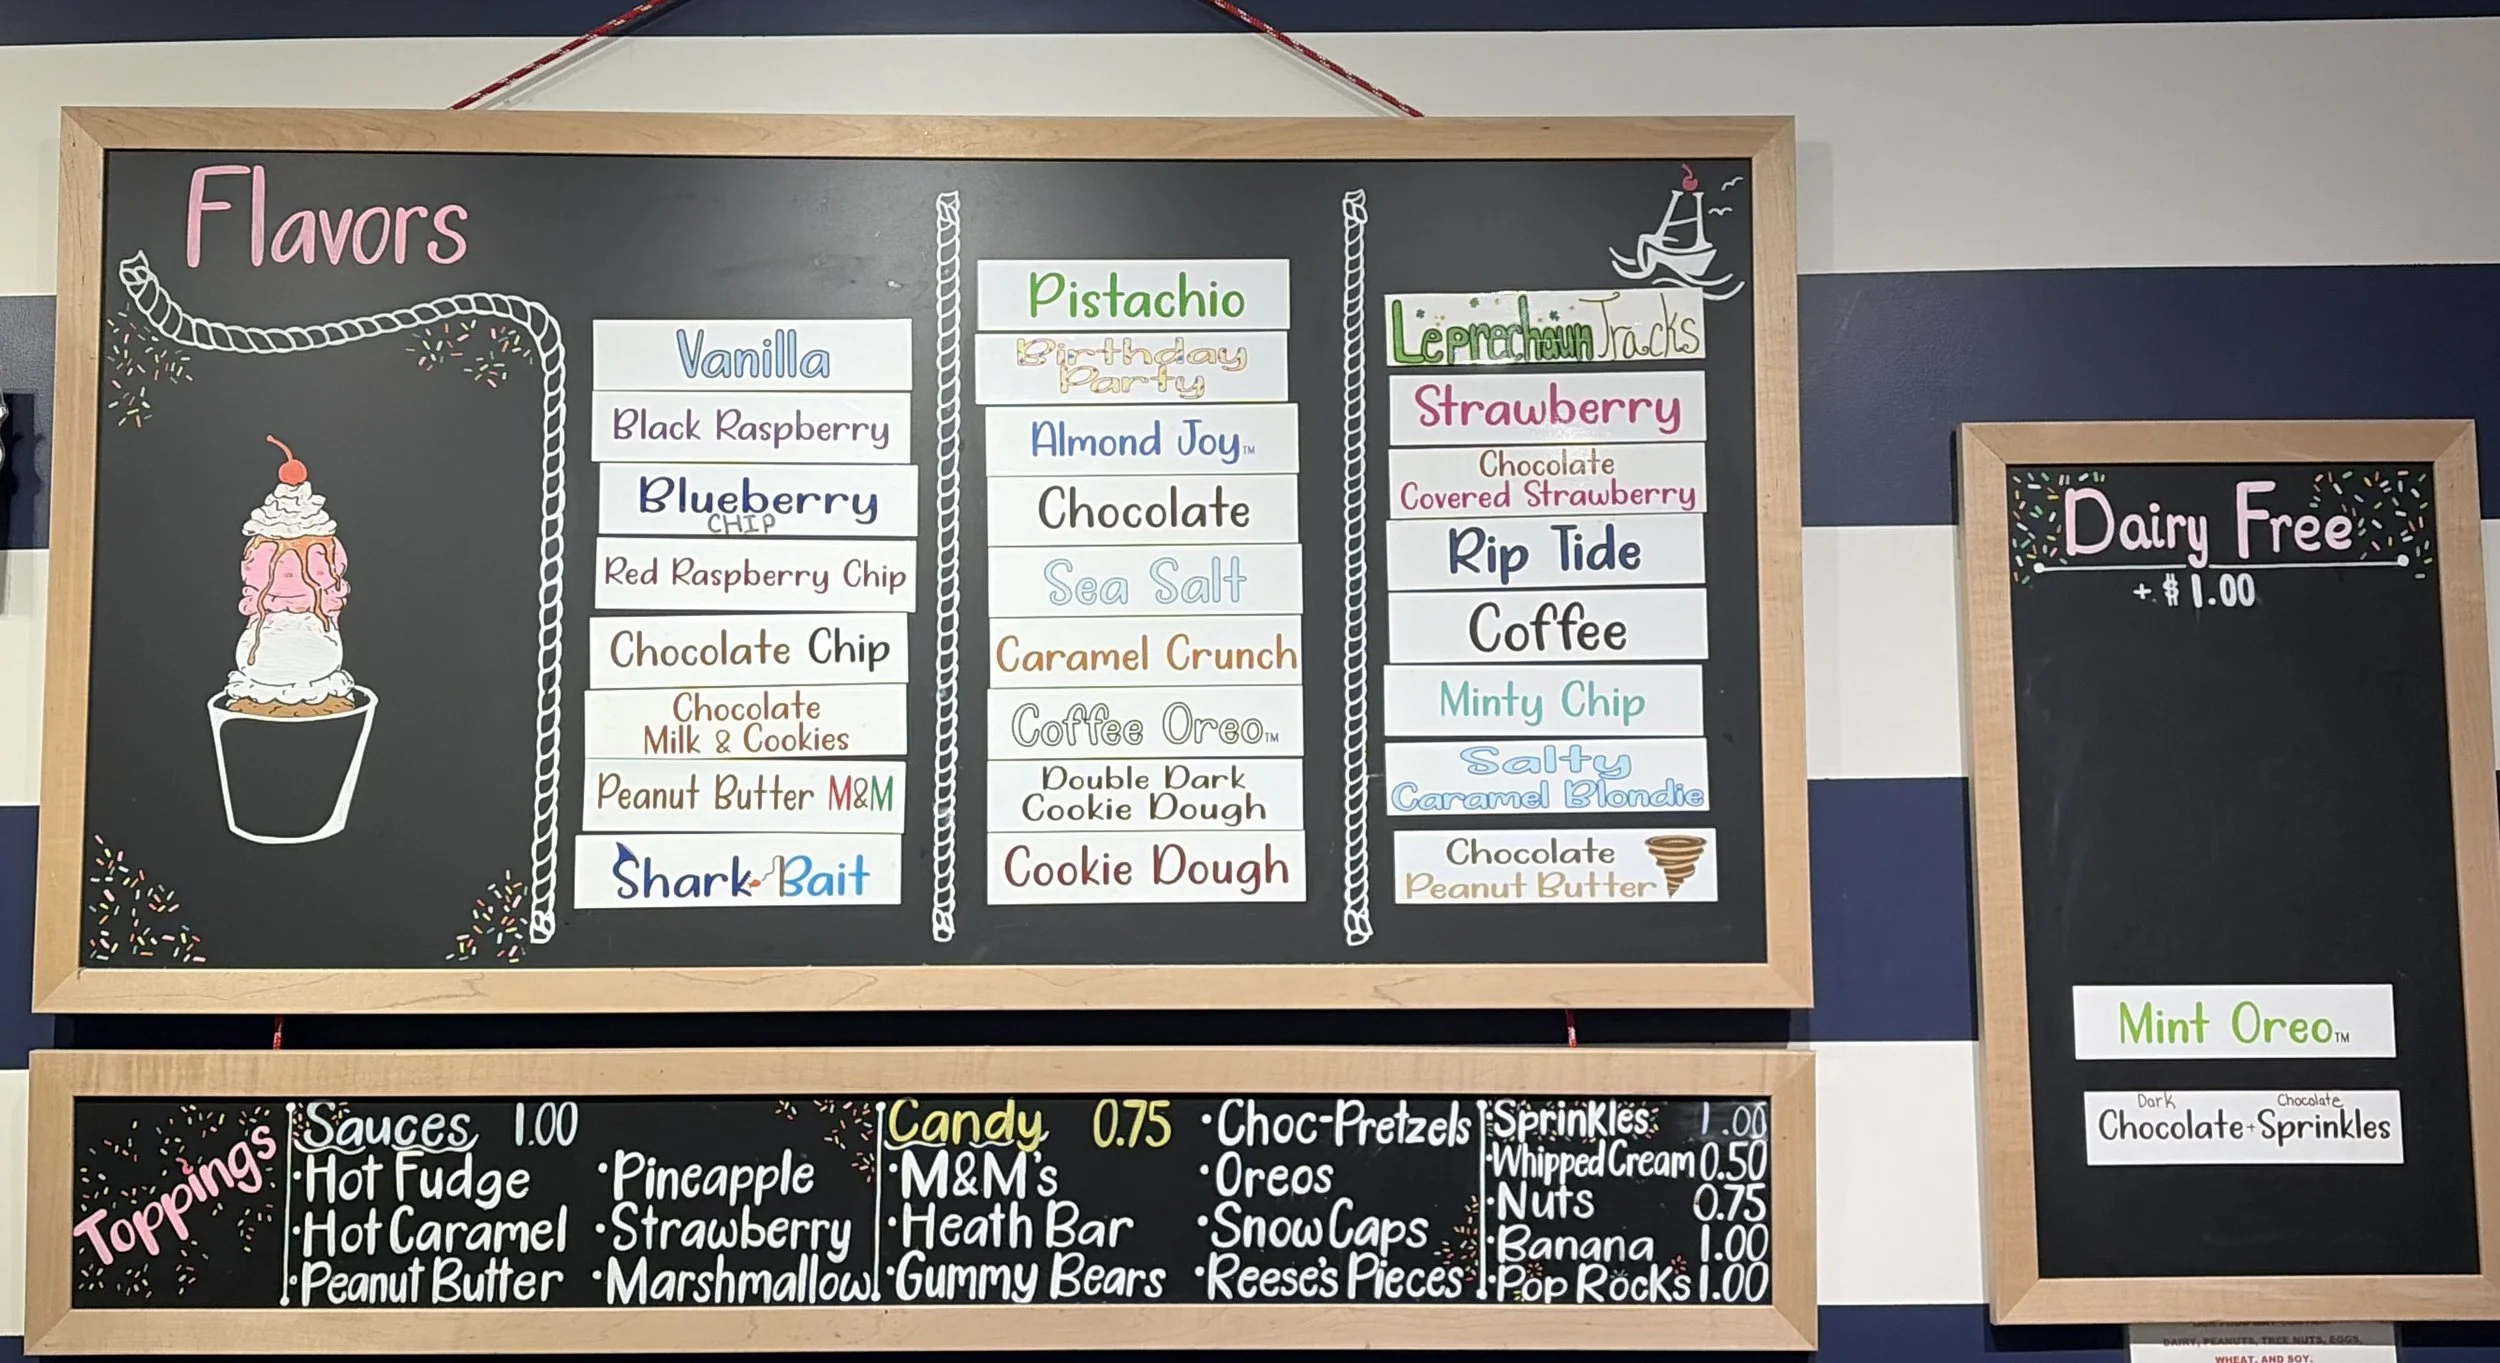 Flavors
Vanilla
Black Raspberry
Blueberry
CHIP
Red Raspberry Chip
Chocolate Chip
Chocolate
Milk & Cookies
Peanut Butter M&M
Shark Bait
Pistachio
Birthday
Party
Almond Joy™
Chocolate
Sea Salt
Caramel Crunch
Coffee Oreo™
Double Dark
Cookie Dough
Cookie Dough
Leprechaun Tracks
Strawberry
Chocolate
Covered Strawberry
Rip Tide
Coffee
Minty Chip
Salty
Caramel Blondie
Chocolate
Peanut Butter
Dairy Free
+ $1.00
Mint Oreo™
Dark Chocolate
Chocolate + Sprinkles
Toppings
Sauces 1.00
• Hot Fudge
• Hot Caramel
• Peanut Butter
• Pineapple
• Strawberry
• Marshmallow
Candy 0.75
• M&M's
• Heath Bar
• Gummy Bears
• Choc-Pretzels
• Oreos
• Snow Caps
• Reese's Pieces
• Sprinkles 1.00
• Whipped Cream 0.50
• Nuts 0.75
• Banana 1.00
• Pop Rocks 1.00
DAIRY, PEANUTS, TREE NUTS, EGGS,
WHEAT, AND SOY.